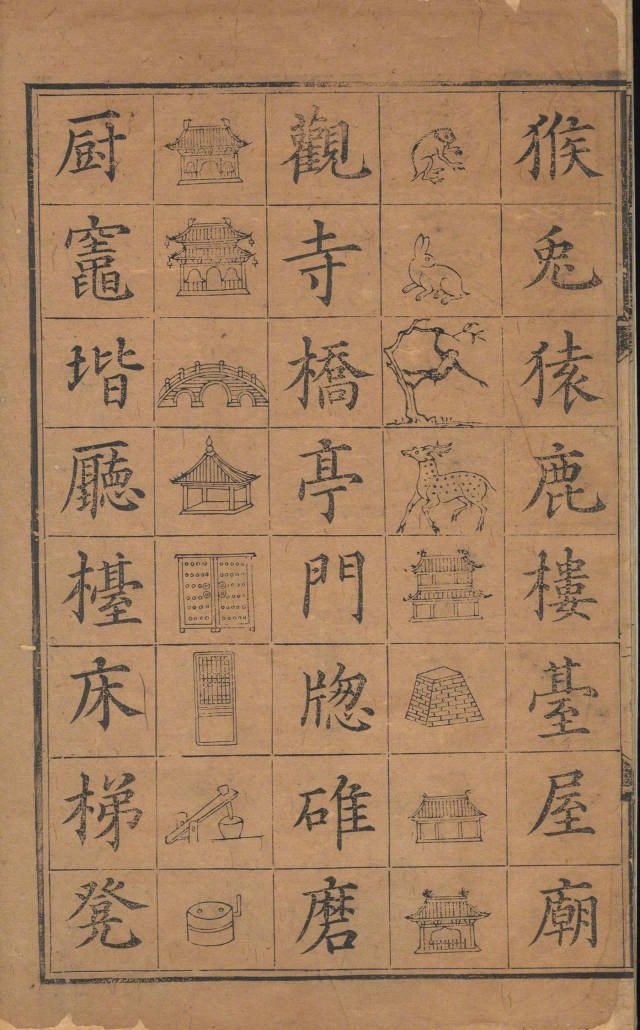 猴兎猿鹿樓臺屋廟
觀寺橋亭門牎碓磨
厨竈堦廳檯床梯凳